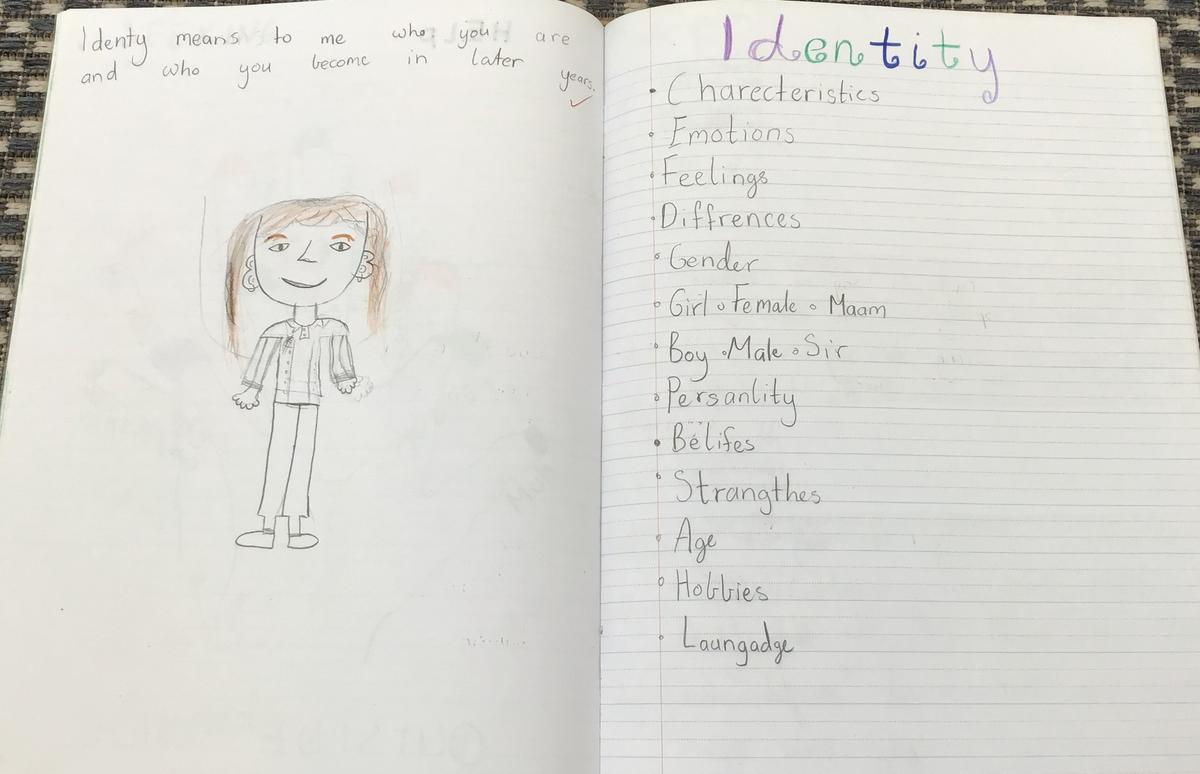 Identy means to me who you are
and who you become in later
years.
Identity
• Charecteristics
• Emotions
• Feelings
• Diffrences
• Gender
• Girl • Female • Maam
• Boy • Male • Sir
• Persanlity
• Belifes
• Strangthes
• Age
• Hobbies
• Laungadge